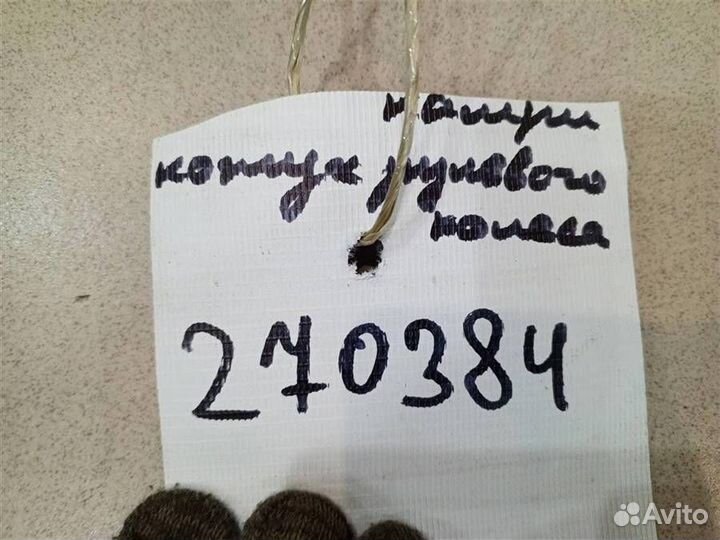 камри
кожух рулевого
колеса
270384
Avito